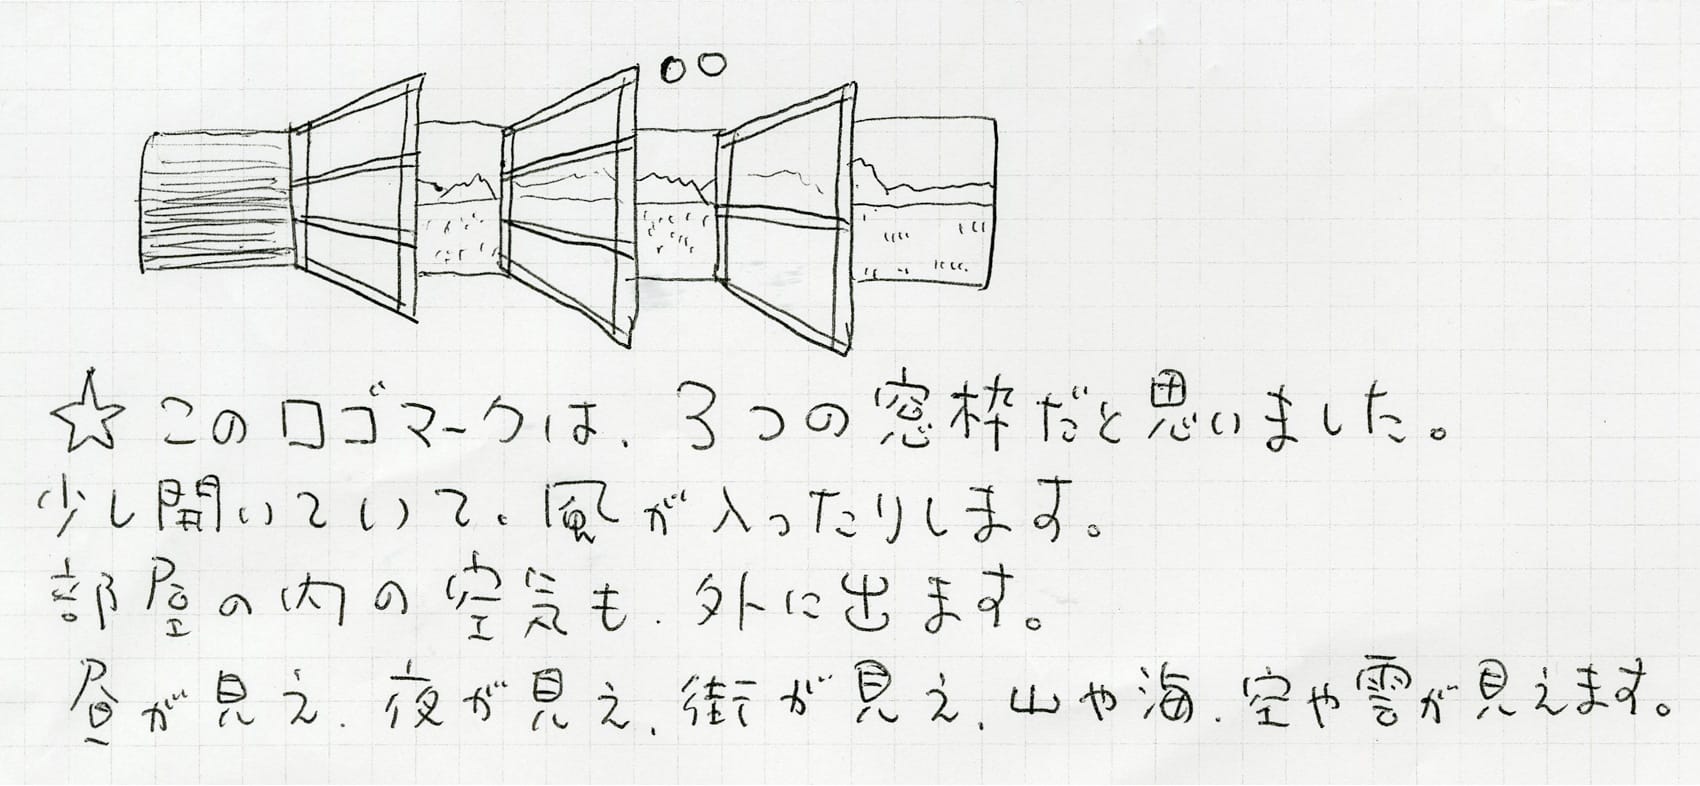 ☆このロゴマークは、3つの窓枠だと思いました。
少し開いていて、風が入ったりします。
部屋の内の空気も、外に出ます。
昼が見え、夜が見え、街が見え、山や海、空や雲が見えます。